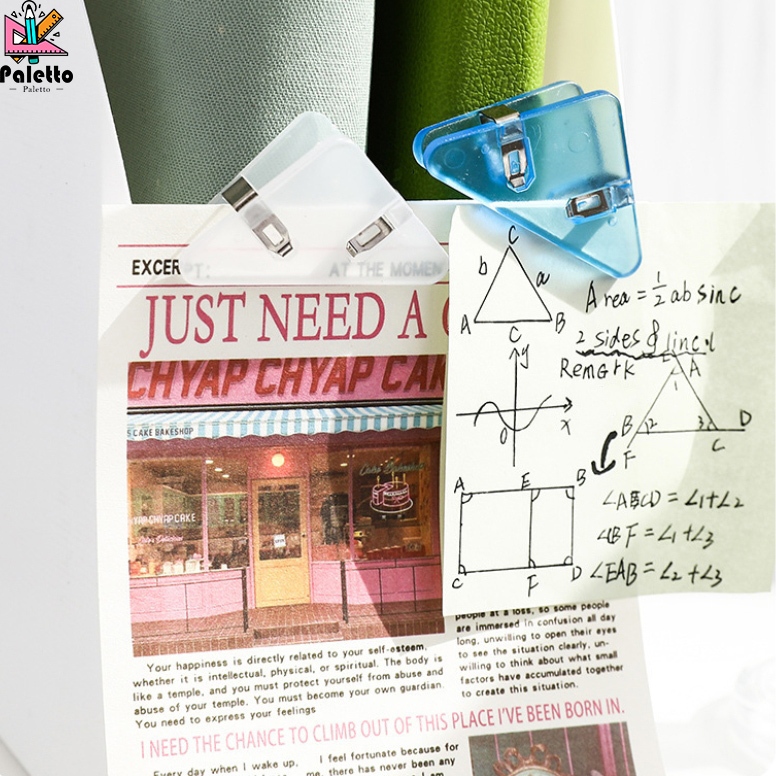 Paletto
Paletto
EXCERPT:
AT THE MOMEN
JUST NEED A
CHYAP CHYAP CAK
S CAKE BAKESHOP
CHYAP CHYAP CAKE
OPEN
Your happiness is directly related to your self-esteem,
whether it is intellectual, physical, or spiritual. The body is
like a temple, and you must protect yourself from abuse and
abuse of your temple. You must become your own guardian.
You need to express your feelings
people at a loss, so some people
are immersed in confusion all day
long, unwilling to open their eyes
to see the situation clearly, un-
willing to think about what small
factors have accumulated together
to create this situation.
I NEED THE CHANCE TO CLIMB OUT OF THIS PLACE I'VE BEEN BORN IN.
Every day when I wake up,
I feel fortunate because for
me, there has never been any
C
b a
A C B
Area = 1/2 ab sin C
2 sides &
Remark
y
0 x
A
1
B 2 3 D
F C
A E B
C F D
∠ABCD = ∠1+∠2
∠BF = ∠1+∠3
∠EAB = ∠2+∠3